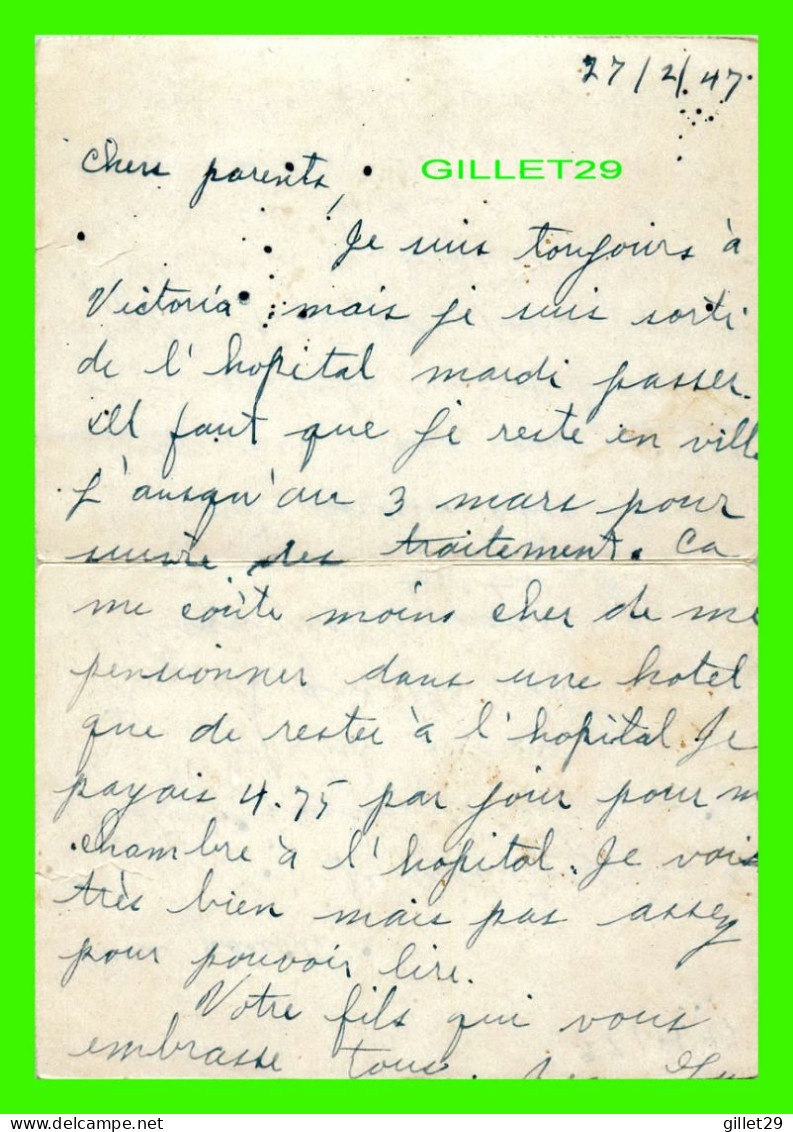 27/2/47
Chers parents,
GILLET29
Je suis toujours à
Victoria mais je suis sorti
de l'hopital mardi passer.
Ill faut que je reste en ville
j'ausqu'au 3 mars pour
suivre des traitement. Ca
me coûte moins cher de me
pensionner dans une hotel
que de rester à l'hopital Je
payais 4.75 par jour pour m
chambre à l'hopital. Je vois
très bien mais pas assey
pour pouvoir lire.
Votre fils qui vous
embrasse tous.
gillet29